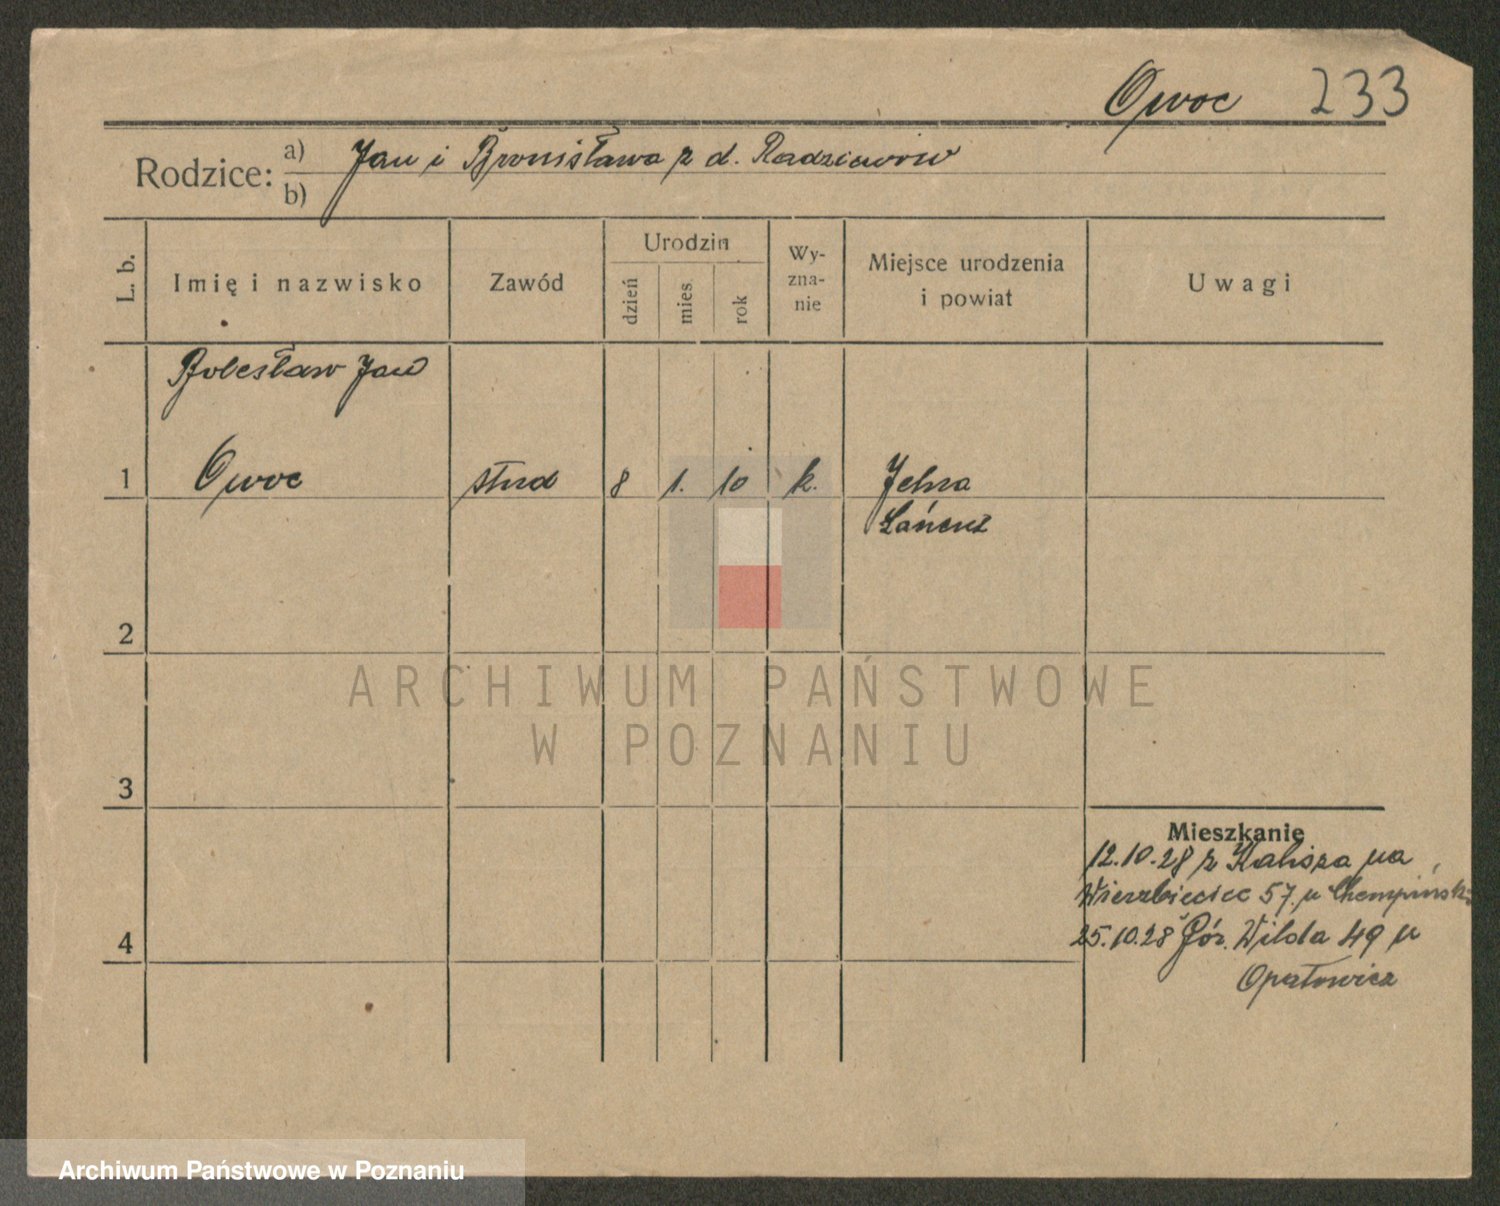 Owoc 233
Rodzice: a) Jan i Bronisława z d.
b)
L. b.
Imię i nazwisko
Zawód
Urodzin
dzień
mies
rok
Wy-
zna-
nie
Miejsce urodzenia
i powiat
Uwagi
Bolesław Jan
1 Owoc stud 8 1. 10 k. Jelna
Łańcut
2
3
4
ARCHIWUM PAŃSTWOWE
W POZNANIU
Mieszkanie
12.10.28 z Kalisza na
Wierzbięcice 57. u
25.10.28 Gór. Wilda 49 u
Opatowicz
Archiwum Państwowe w Poznaniu